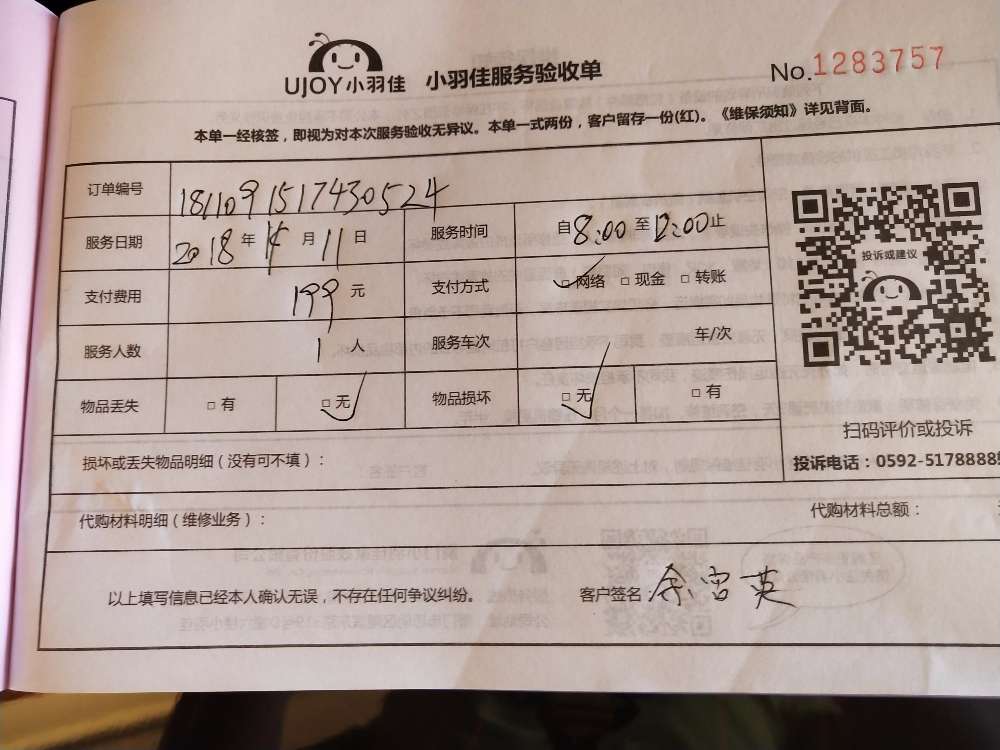 UJOY小羽佳 小羽佳服务验收单 No.1283757
本单一经核签，即视为对本次服务验收无异议。本单一式两份，客户留存一份(红)。《维保须知》详见背面。
订单编号 181109151743052４
服务日期 2018年 月11日 服务时间 自8:00至12:00止
支付费用 199元 支付方式 □网络 □现金 □转账
服务人数 1人 服务车次 车/次
物品丢失 □有 □无 物品损坏 □无 □有
投诉或建议
扫码评价或投诉
投诉电话：0592-5178888
损坏或丢失物品明细（没有可不填）：
代购材料明细（维修业务）： 代购材料总额：
以上填写信息已经本人确认无误，不存在任何争议纠纷。 客户签名：余 英